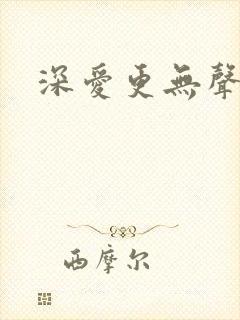 深愛更無聲
西摩尔